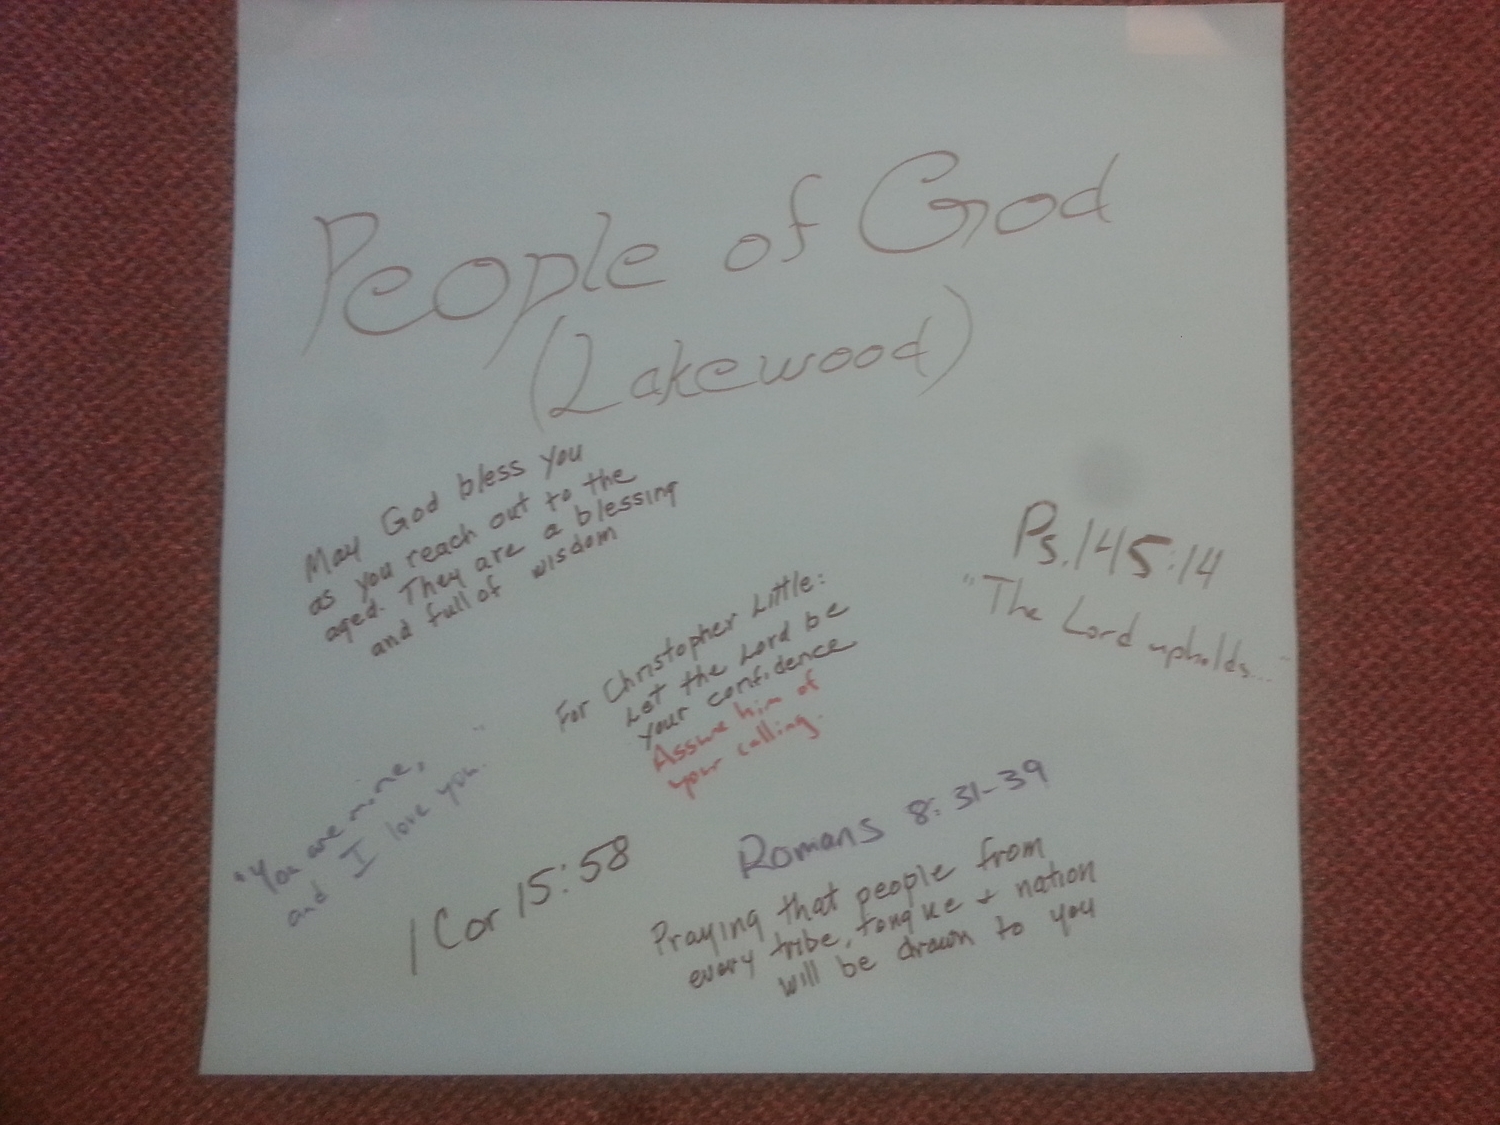 People of God
(Lakewood)
May God bless you
as you reach out to the
aged. They are a blessing
and full of wisdom
Ps. 145:14
"The Lord upholds..."
For Christopher Little:
Let the Lord be
your confidence
Assure him of
your calling.
"You are mine,
and I love you."
1 Cor 15:58
Romans 8:31-39
Praying that people from
every tribe, tongue + nation
will be drawn to you